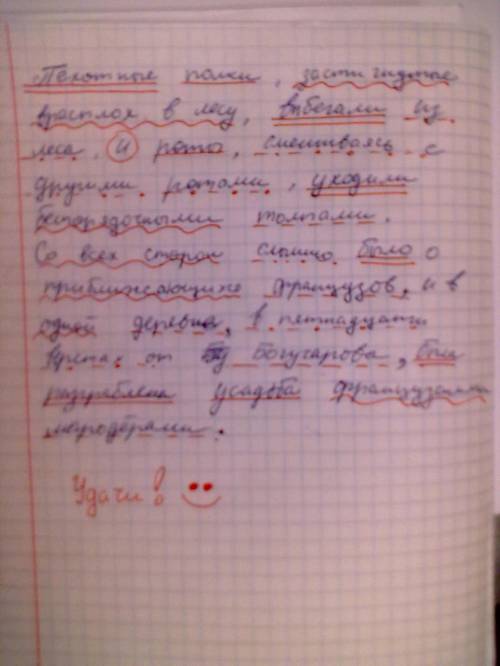 Пехотные полки, застигнутые
врасплох в лесу, выбегали из
леса, и роты, смешиваясь с
другими ротами, уходили
беспорядочными толпами.
Со всех сторон слышно было о
приближающихся французов, и в
одной деревне, в пятнадцати
верстах от Богучарова, была
разграблена усадьба французскими
мародёрами.
Удачи!